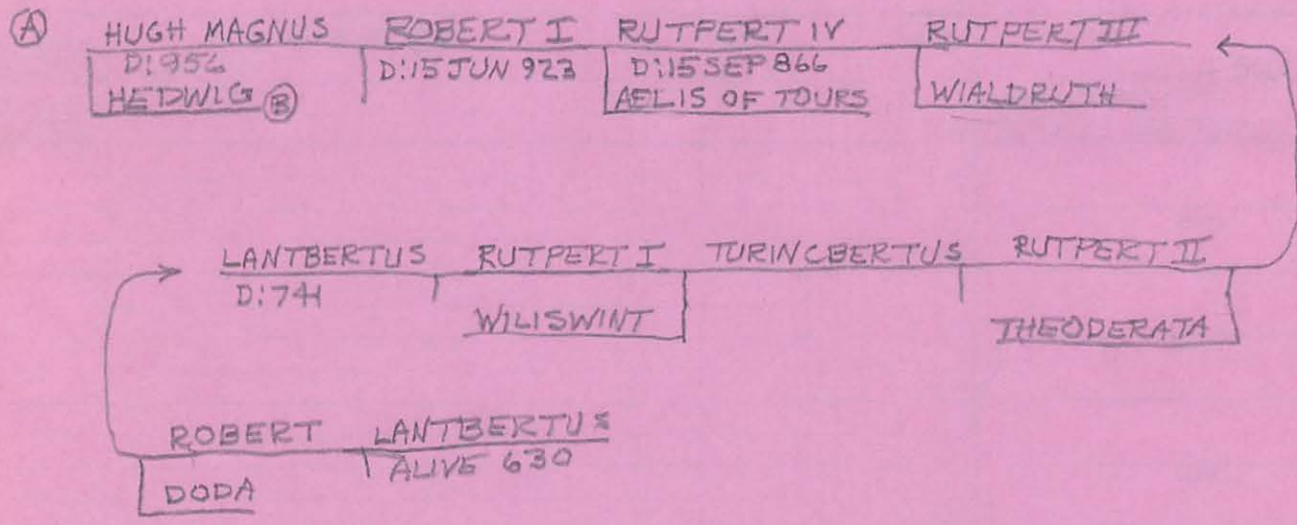 Ⓐ HUGH MAGNUS ROBERT I RUTPERT IV RUTPERT III
D:956 D:15 JUN 923 D:15 SEP 866
HEDWIG Ⓑ AELIS OF TOURS WIALDRUTH
LANTBERTUS RUTPERT I TURINCBERTUS RUTPERT II
D:741
WILISWINT THEODERATA
ROBERT LANTBERTUS
ALIVE 630
DODA